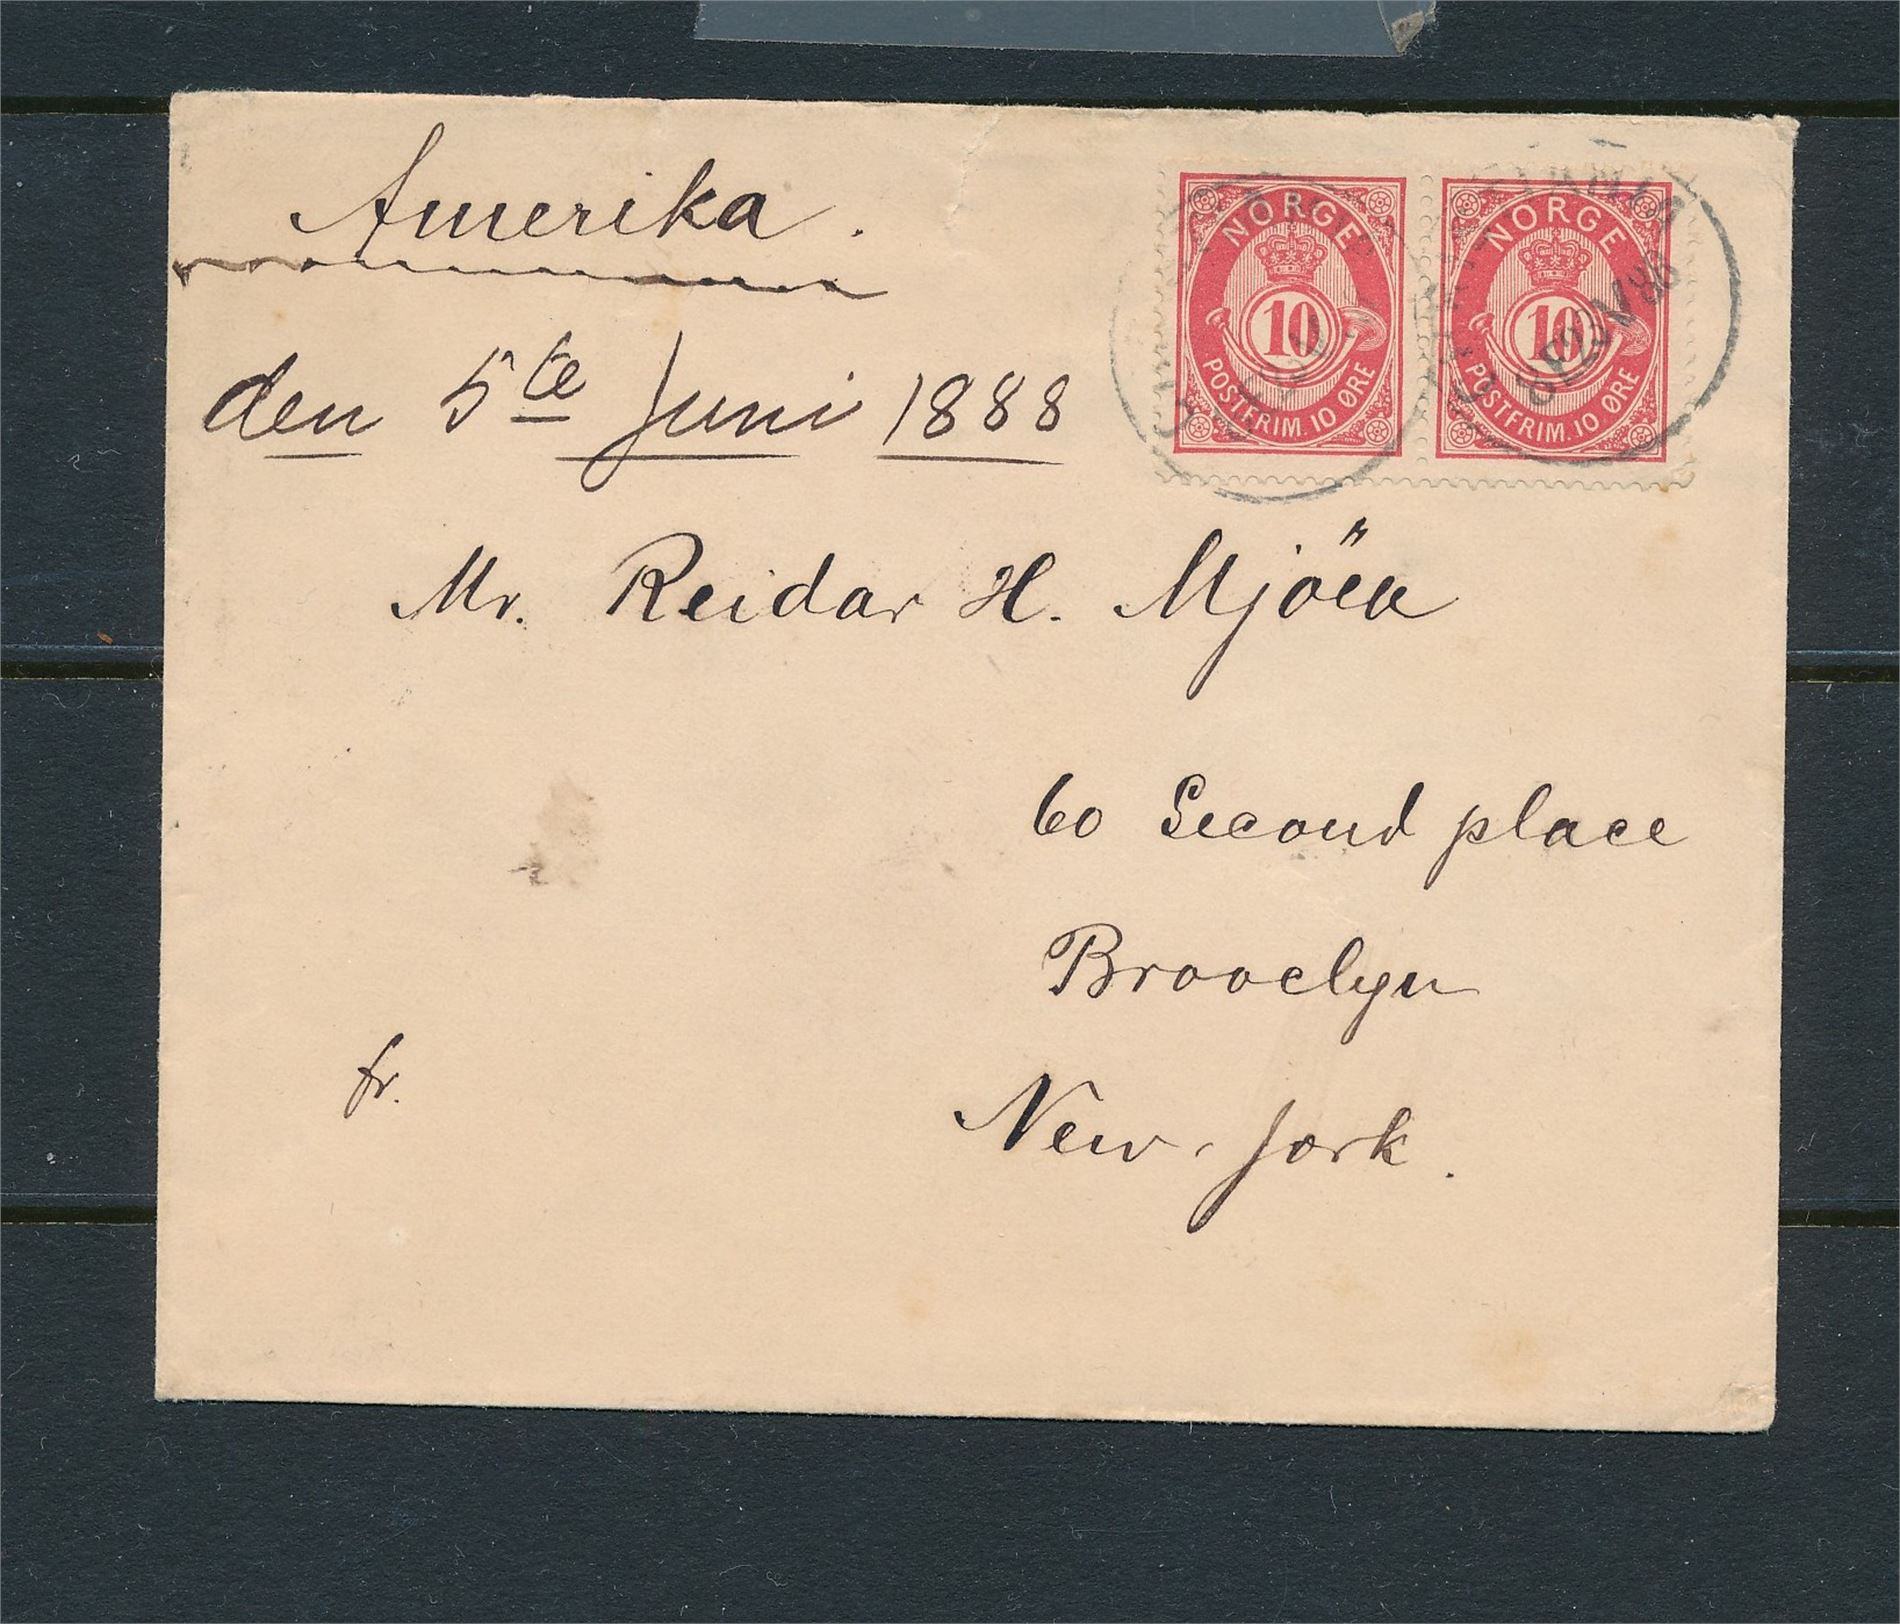 Amerika.
den 5te Juni 1888
NORGE
10
POSTFRIM. 10 ØRE
NORGE
10
POSTFRIM. 10 ØRE
Mr. Reidar H. Mjöen
60 Second place
Broocl​yn
New-Jork.
fr.